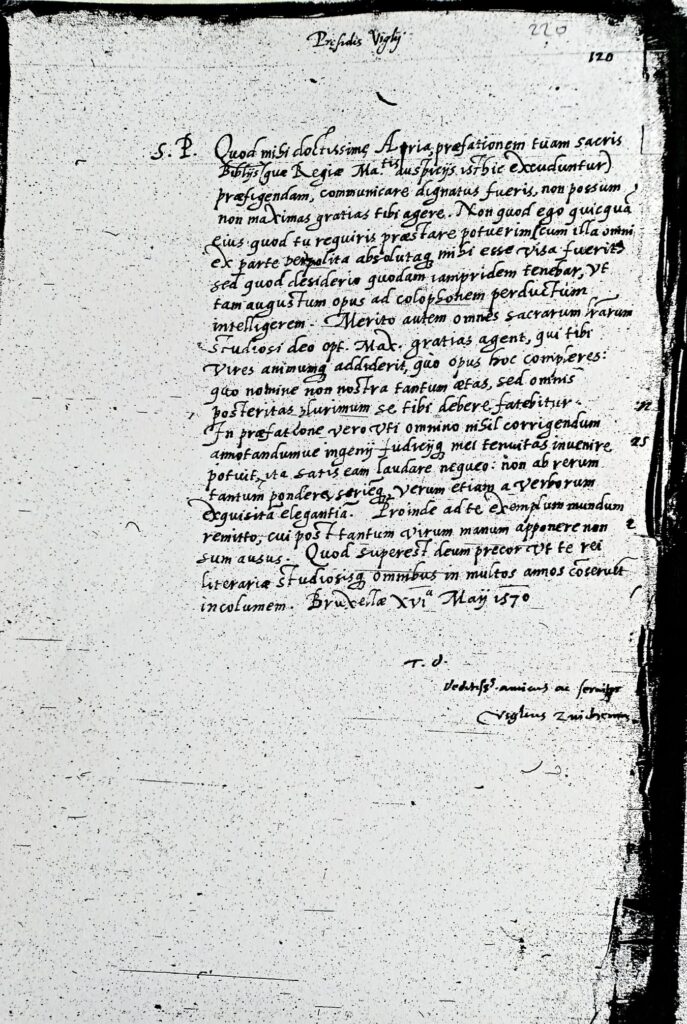 Præsidis Viglij
220
120
S. P. Quod mihi doctissime Aria præfationem tuam sacris
Biblijs (quæ Regiæ Ma.tis auspicijs isthic excuduntur)
præfigendam, communicare dignatus fueris, non possum
non maximas gratias tibi agere. Non quod ego quicquā
eius quod tu requiris præstare potuerim (cum illa omni
ex parte perpolita absolutaq mihi esse visa fuerit)
sed quod desiderio quodam iampridem tenebar, vt
tam augustum opus ad colophonem perductum
intelligerem. Merito autem omnes sacrarum lrarum
studiosi deo opt. Max. gratias agent, qui tibi
vires animumq addiderit, quo opus hoc compleres:
quo nomine non nostra tantum ætas, sed omnis
posteritas plurimum se tibi debere fatebitur.
In præfatione vero vti omnino nihil corrigendum
annotandumue ingenij Judicijq mei tenuitas inuenire
potuit, ita satis eam laudare nequeo: non ab rerum
tantum pondere, serieq, verum etiam a verborum
exquisita elegantia. Proinde ad te exemplum mundum
remitto, cui post tantum virum manum apponere non
sum ausus. Quod superest deum precor vt te rei
literariæ studiosisq omnibus in multos annos cōseruet
incolumem. Bruxellæ XVIa Maij 1570
T. d.
deditiss. amicus ac seruitor
Viglius Zuichemus